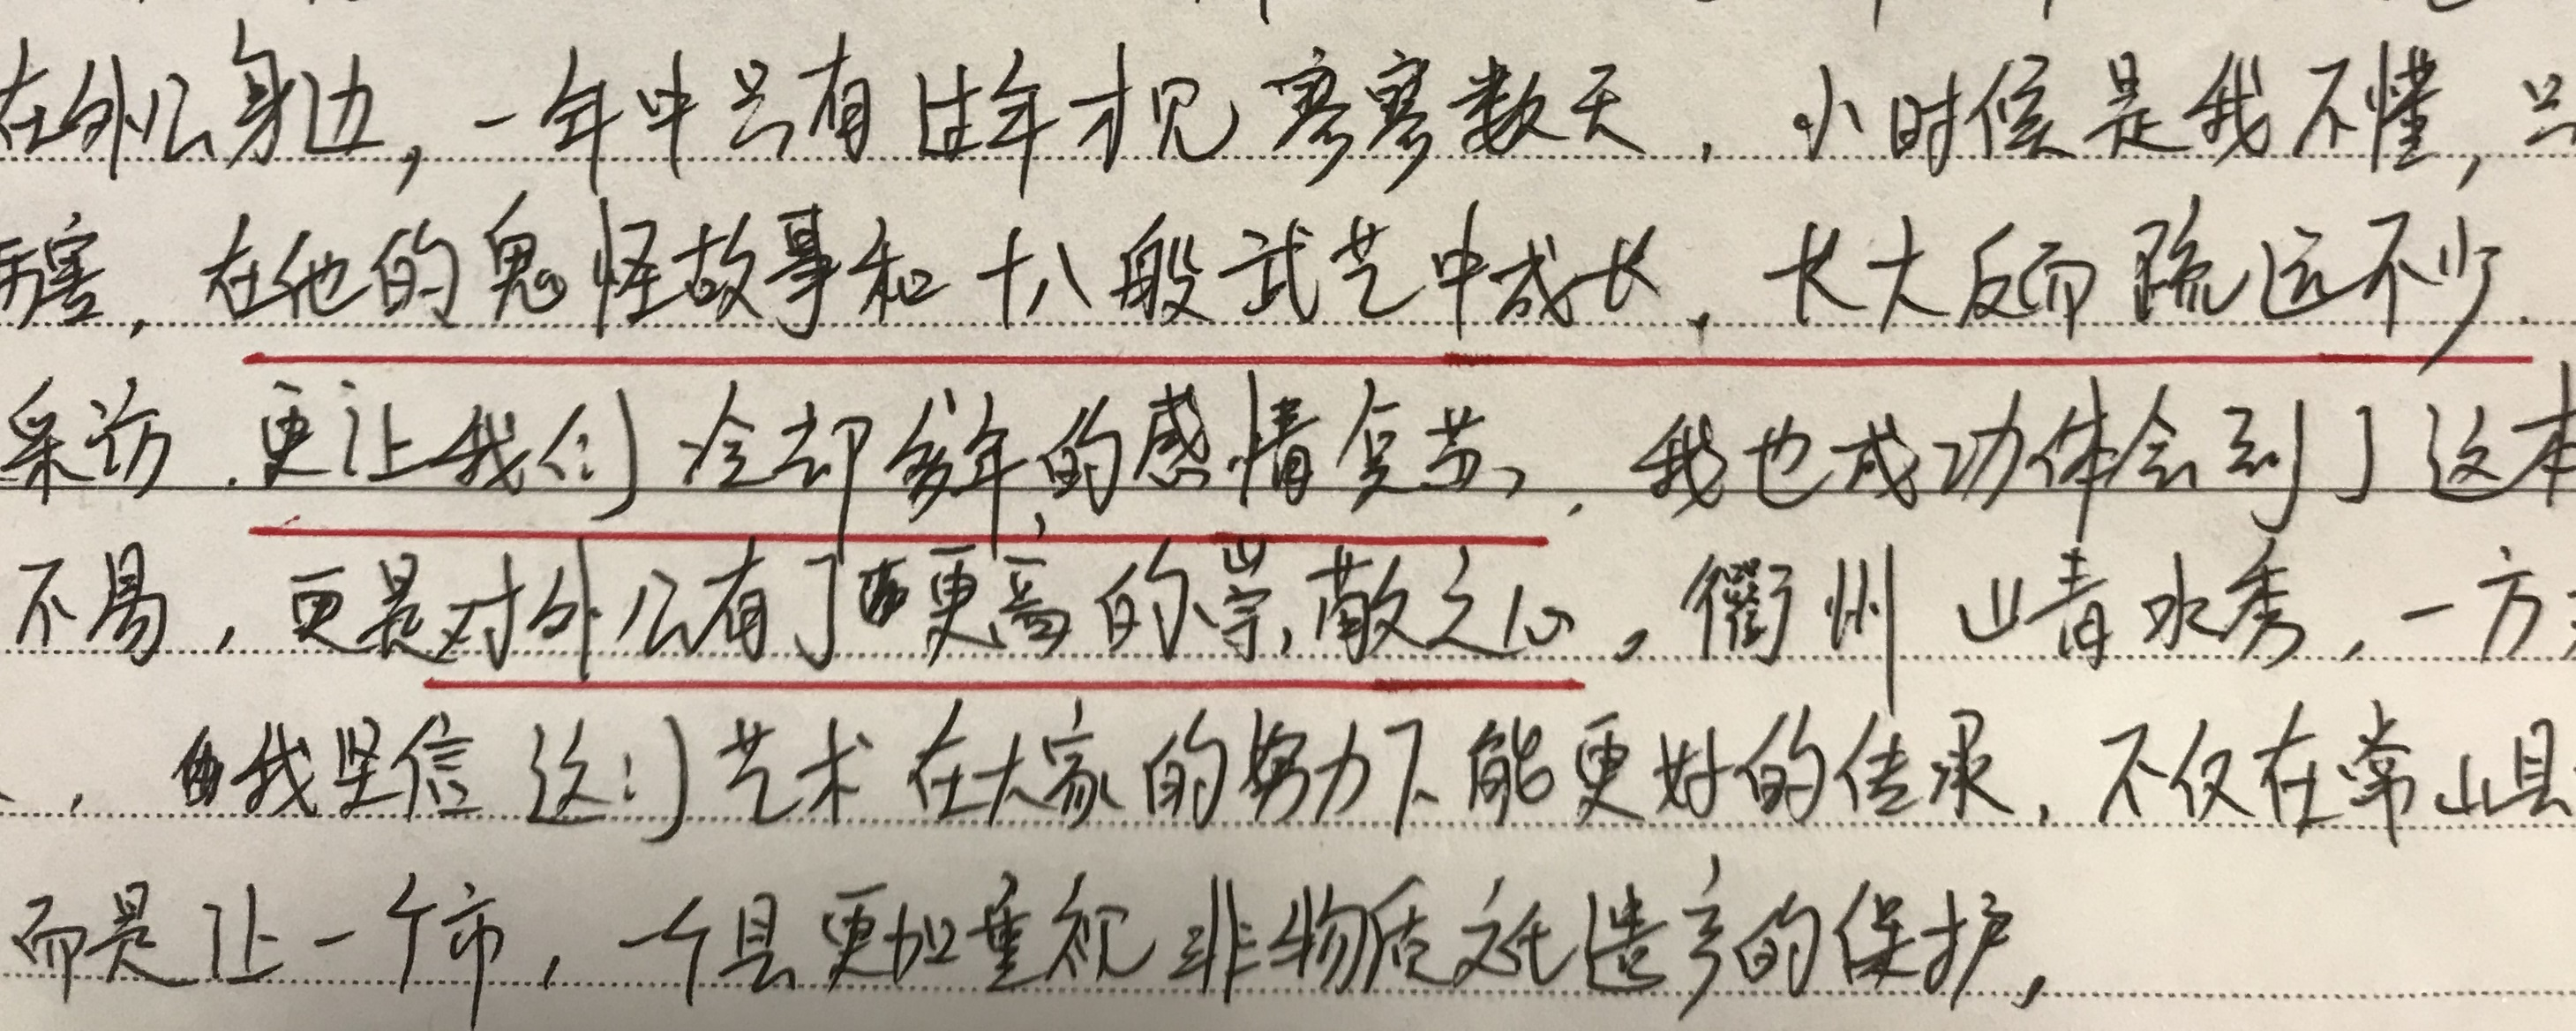 在外公身边，一年中只有过年才见寥寥数天，小时候是我不懂，只
厉害，在他的鬼怪故事和十八般武艺中成长，长大反而疏远不少.
采访，更让我们冷却多年的感情复苏，我也成功体会到了这本
不易，更是对外公有了更高的崇敬之心，衢州山青水秀，一方
，我坚信这门艺术在大家的努力下能更好的传承，不仅在常山县
而是让一个市，一个县更加重视非物质文化遗产的保护，